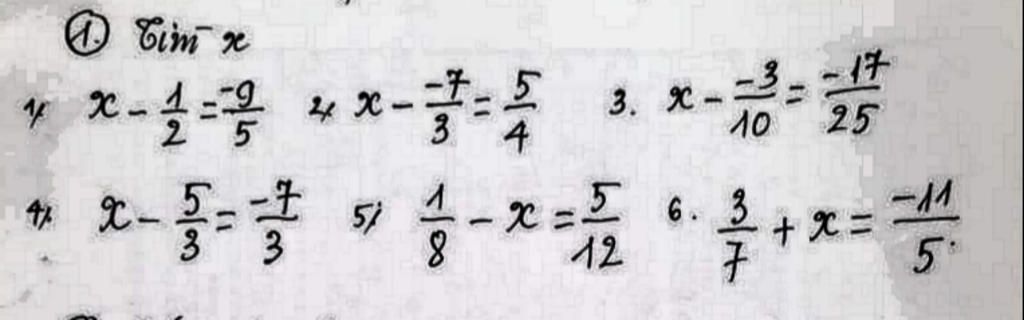 ① Tìm x
1, x - 1/2 = -9/5 2, x - -7/3 = 5/4 3. x - -3/10 = -17/25
4, x - 5/3 = -7/3 5, 1/8 - x = 5/12 6. 3/7 + x = -11/5.